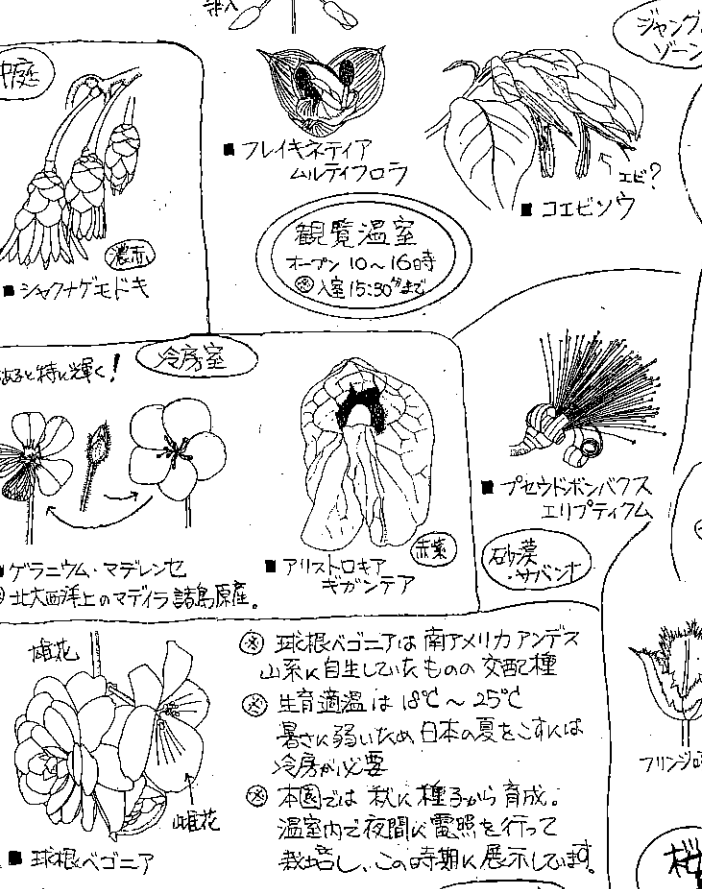 中庭
濃赤
■シャクナゲモドキ
■フレイキネティア
ムルティフロラ
エビ?
■コエビソウ
観覧温室
オープン 10～16時
※入室15:30分まで
特に輝く!
冷房室
■ゲラニウム・マデレンセ
※北大西洋上のマデイラ諸島原産。
■アリストロキア
ギガンテア
赤紫
■プセウドボンバクス
エリプティクム
砂漠
・サバンナ
雄花
雌花
■球根ベゴニア
※球根ベゴニアは南アメリカアンデス
山系に自生していたものの交配種
※生育適温は18℃～25℃
暑さに弱いため日本の夏をこすには
冷房が必要
※本園では秋に種子から育成。
温室内で夜間に電照を行って
栽培し、この時期に展示しています。
フリンジ
桜